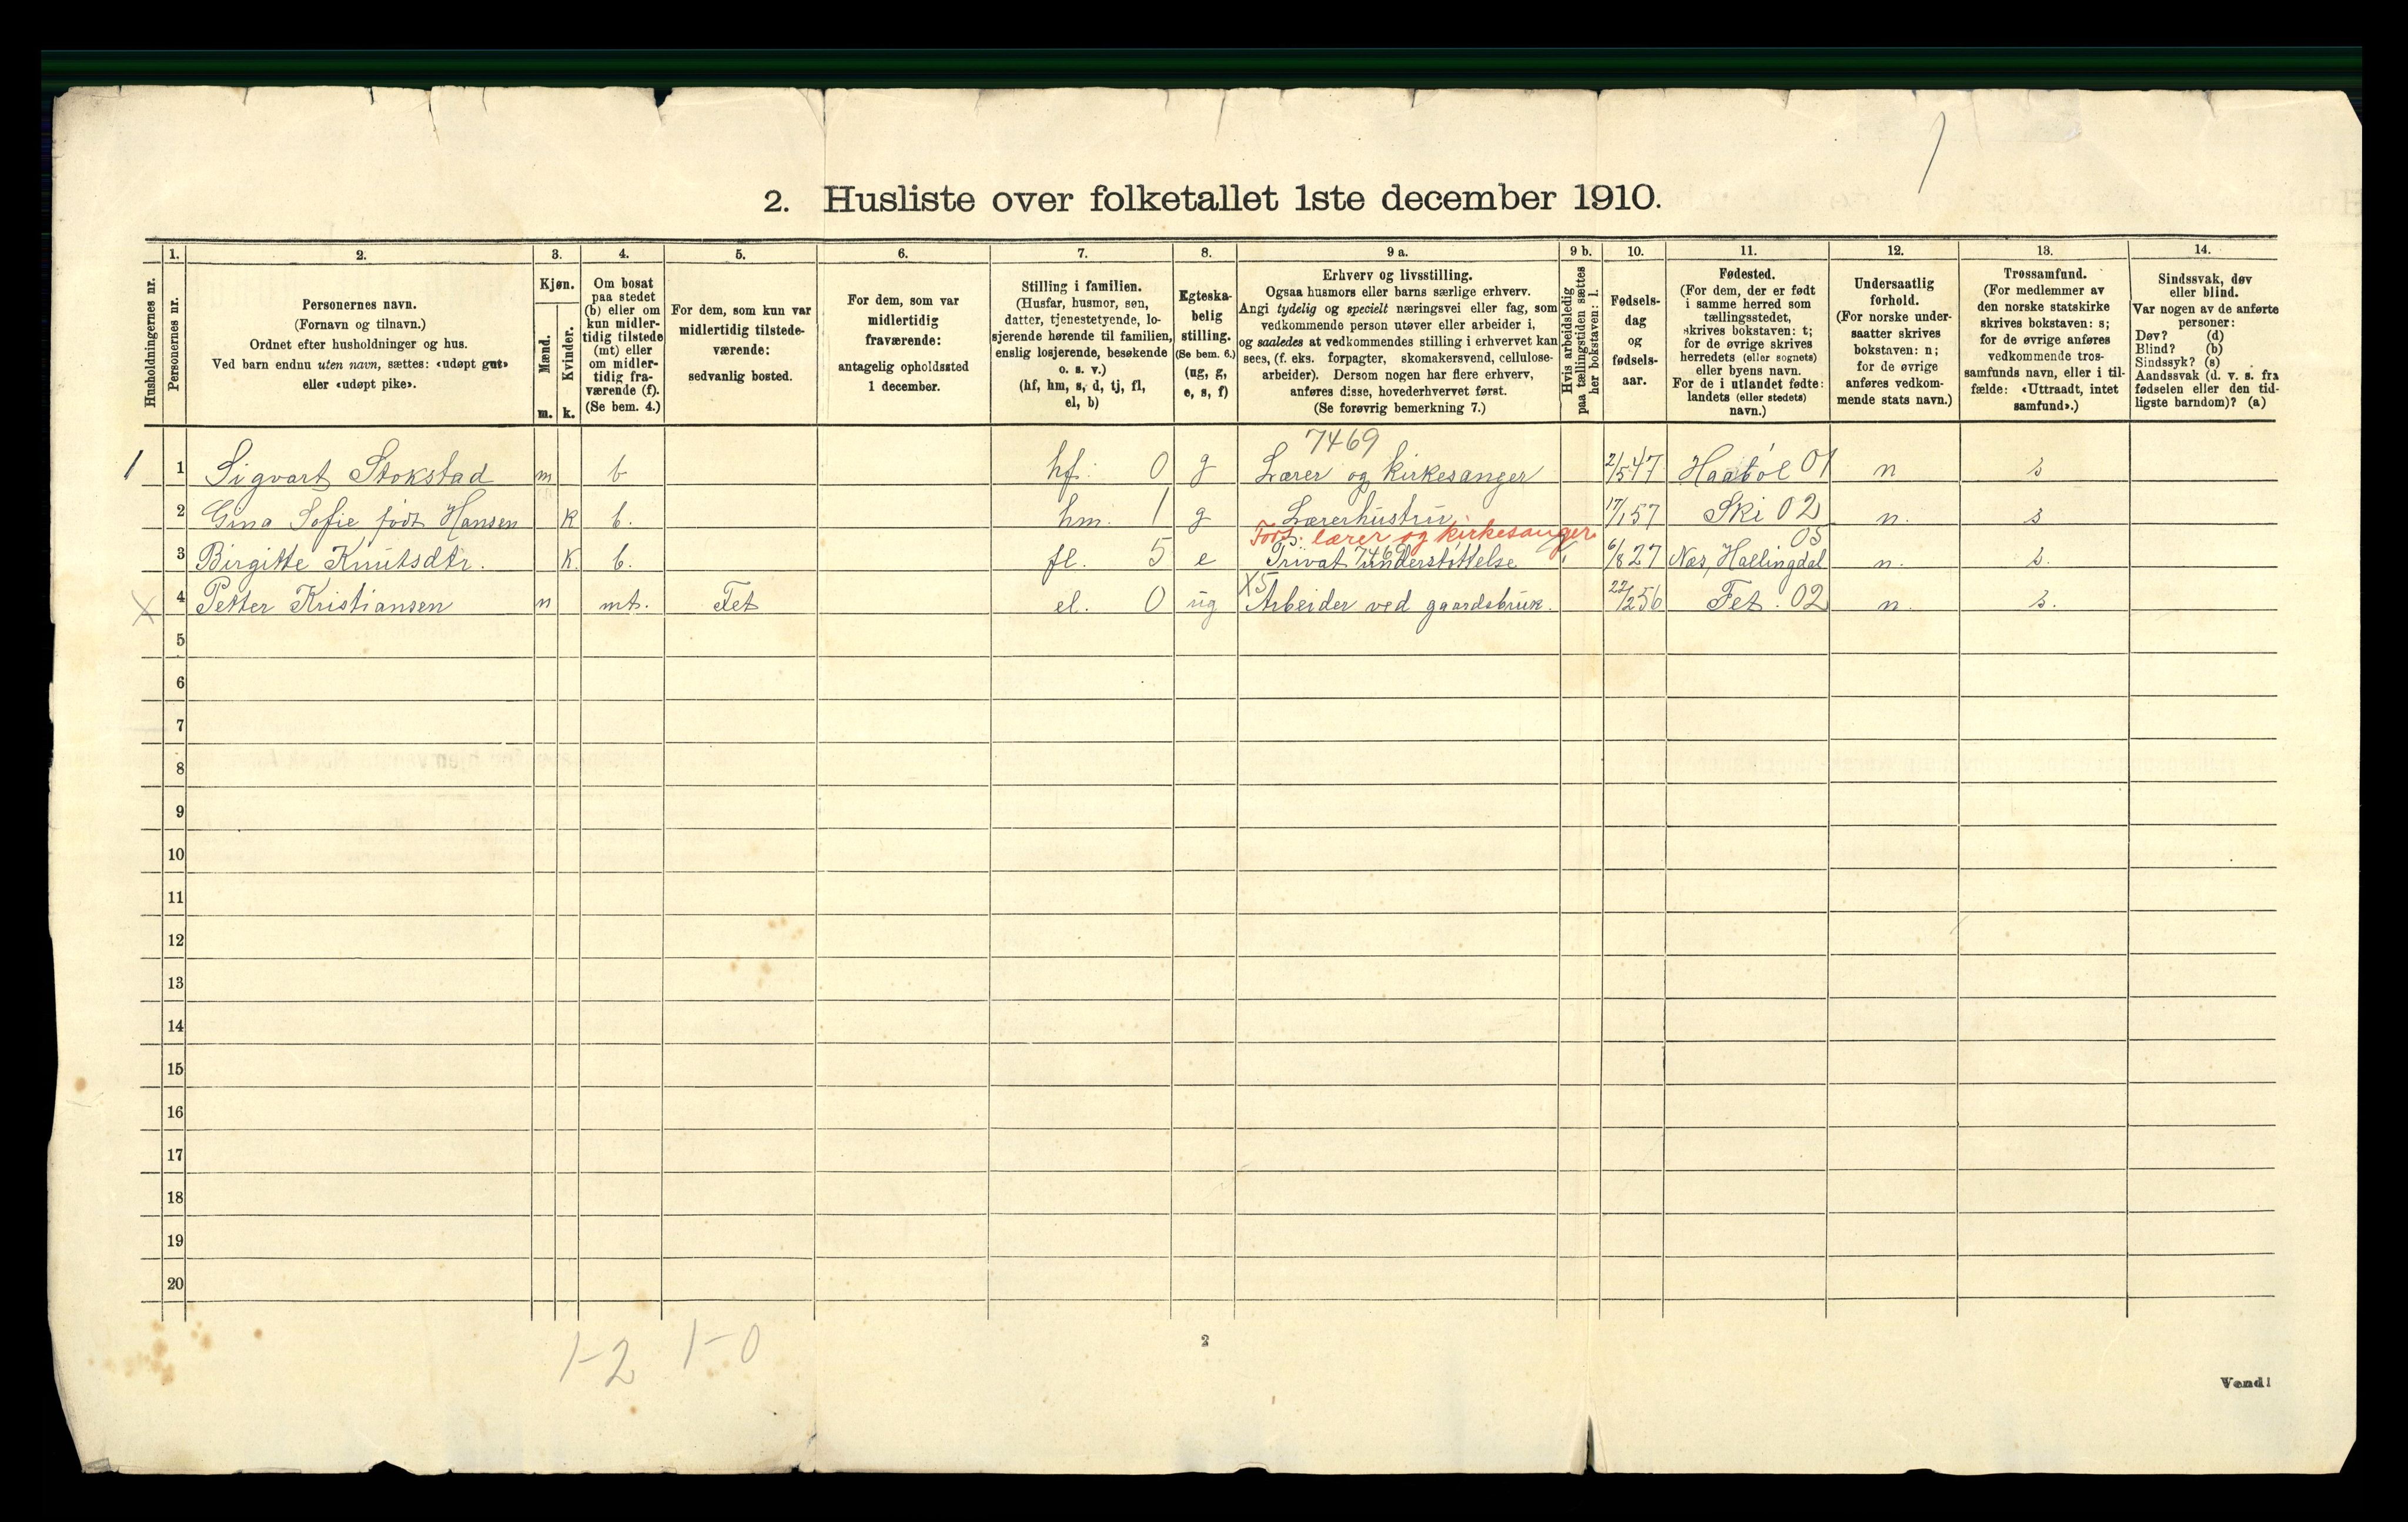 1
2. Husliste over folketallet 1ste december 1910.
Husholdningernes nr.
1.
Personernes nr.
2.
Personernes navn.
(Fornavn og tilnavn.)
Ordnet efter husholdninger og hus.
Ved barn endnu uten navn, sættes: «udøpt gut»
eller «udøpt pike».
3.
Kjøn.
Mænd.
m.
Kvinder.
k.
4.
Om bosat
paa stedet
(b) eller om
kun midler-
tidig tilstede
(mt) eller
om midler-
tidig fra-
værende (f).
(Se bem. 4.)
5.
For dem, som kun var
midlertidig tilstede-
værende:
sedvanlig bosted.
6.
For dem, som var
midlertidig
fraværende:
antagelig opholdssted
1 december.
7.
Stilling i familien.
(Husfar, husmor, søn,
datter, tjenestetyende, lo-
sjerende hørende til familien,
enslig losjerende, besøkende
o. s. v.)
(hf, hm, s, d, tj, fl,
el, b)
8.
Egteska-
belig
stilling.
(Se bem. 6.)
(ug, g,
e, s, f)
9 a.
Erhverv og livsstilling.
Ogsaa husmors eller barns særlige erhverv.
Angi tydelig og specielt næringsvei eller fag, som
vedkommende person utøver eller arbeider i,
og saaledes at vedkommendes stilling i erhvervet kan
sees, (f. eks. forpagter, skomakersvend, cellulose-
arbeider). Dersom nogen har flere erhverv,
anføres disse, hovederhvervet først.
(Se forøvrig bemerkning 7.)
9 b.
Hvis arbeidsledig
paa tællingstiden sættes
her bokstaven: l.
10.
Fødsels-
dag
og
fødsels-
aar.
11.
Fødested.
(For dem, der er født
i samme herred som
tællingsstedet,
skrives bokstaven: t;
for de øvrige skrives
herredets (eller sognets)
eller byens navn.
For de i utlandet fødte:
landets (eller stedets)
navn.)
12.
Undersaatlig
forhold.
(For norske under-
saatter skrives
bokstaven: n;
for de øvrige
anføres vedkom-
mende stats navn.)
13.
Trossamfund.
(For medlemmer av
den norske statskirke
skrives bokstaven: s;
for de øvrige anføres
vedkommende tros-
samfunds navn, eller i til-
fælde: «Uttraadt, intet
samfund».)
14.
Sindssvak, døv
eller blind.
Var nogen av de anførte
personer:
Døv? (d)
Blind? (b)
Sindssyk? (s)
Aandssvak (d. v. s. fra
fødselen eller den tid-
ligste barndom)? (a)
7469
1 1 Sigvart Stokstad m b hf. 0 g Lærer og kirkesanger 2/5 47 Haabøl 01 n s
2 Gina Sofie født Hansen k b. hm. 1 g Lærerhustru 17/1 57 Ski 02 n. s
Fors: lærer og kirkesanger 05
3 Birgitte Knutsdtr. k. b. fl. 5 e Privat 7469 understøttelse 6/8 27 Næs, Hallingdal n. s.
X5
X 4 Petter Kristiansen m mt. Fet el. 0 ug Arbeider ved gaardsbruk. 22/2 56 Fet. 02 n. s.
5
6
7
8
9
10
11
12
13
14
15
16
17
18
19
20
1-2 1-0
2
Vend!